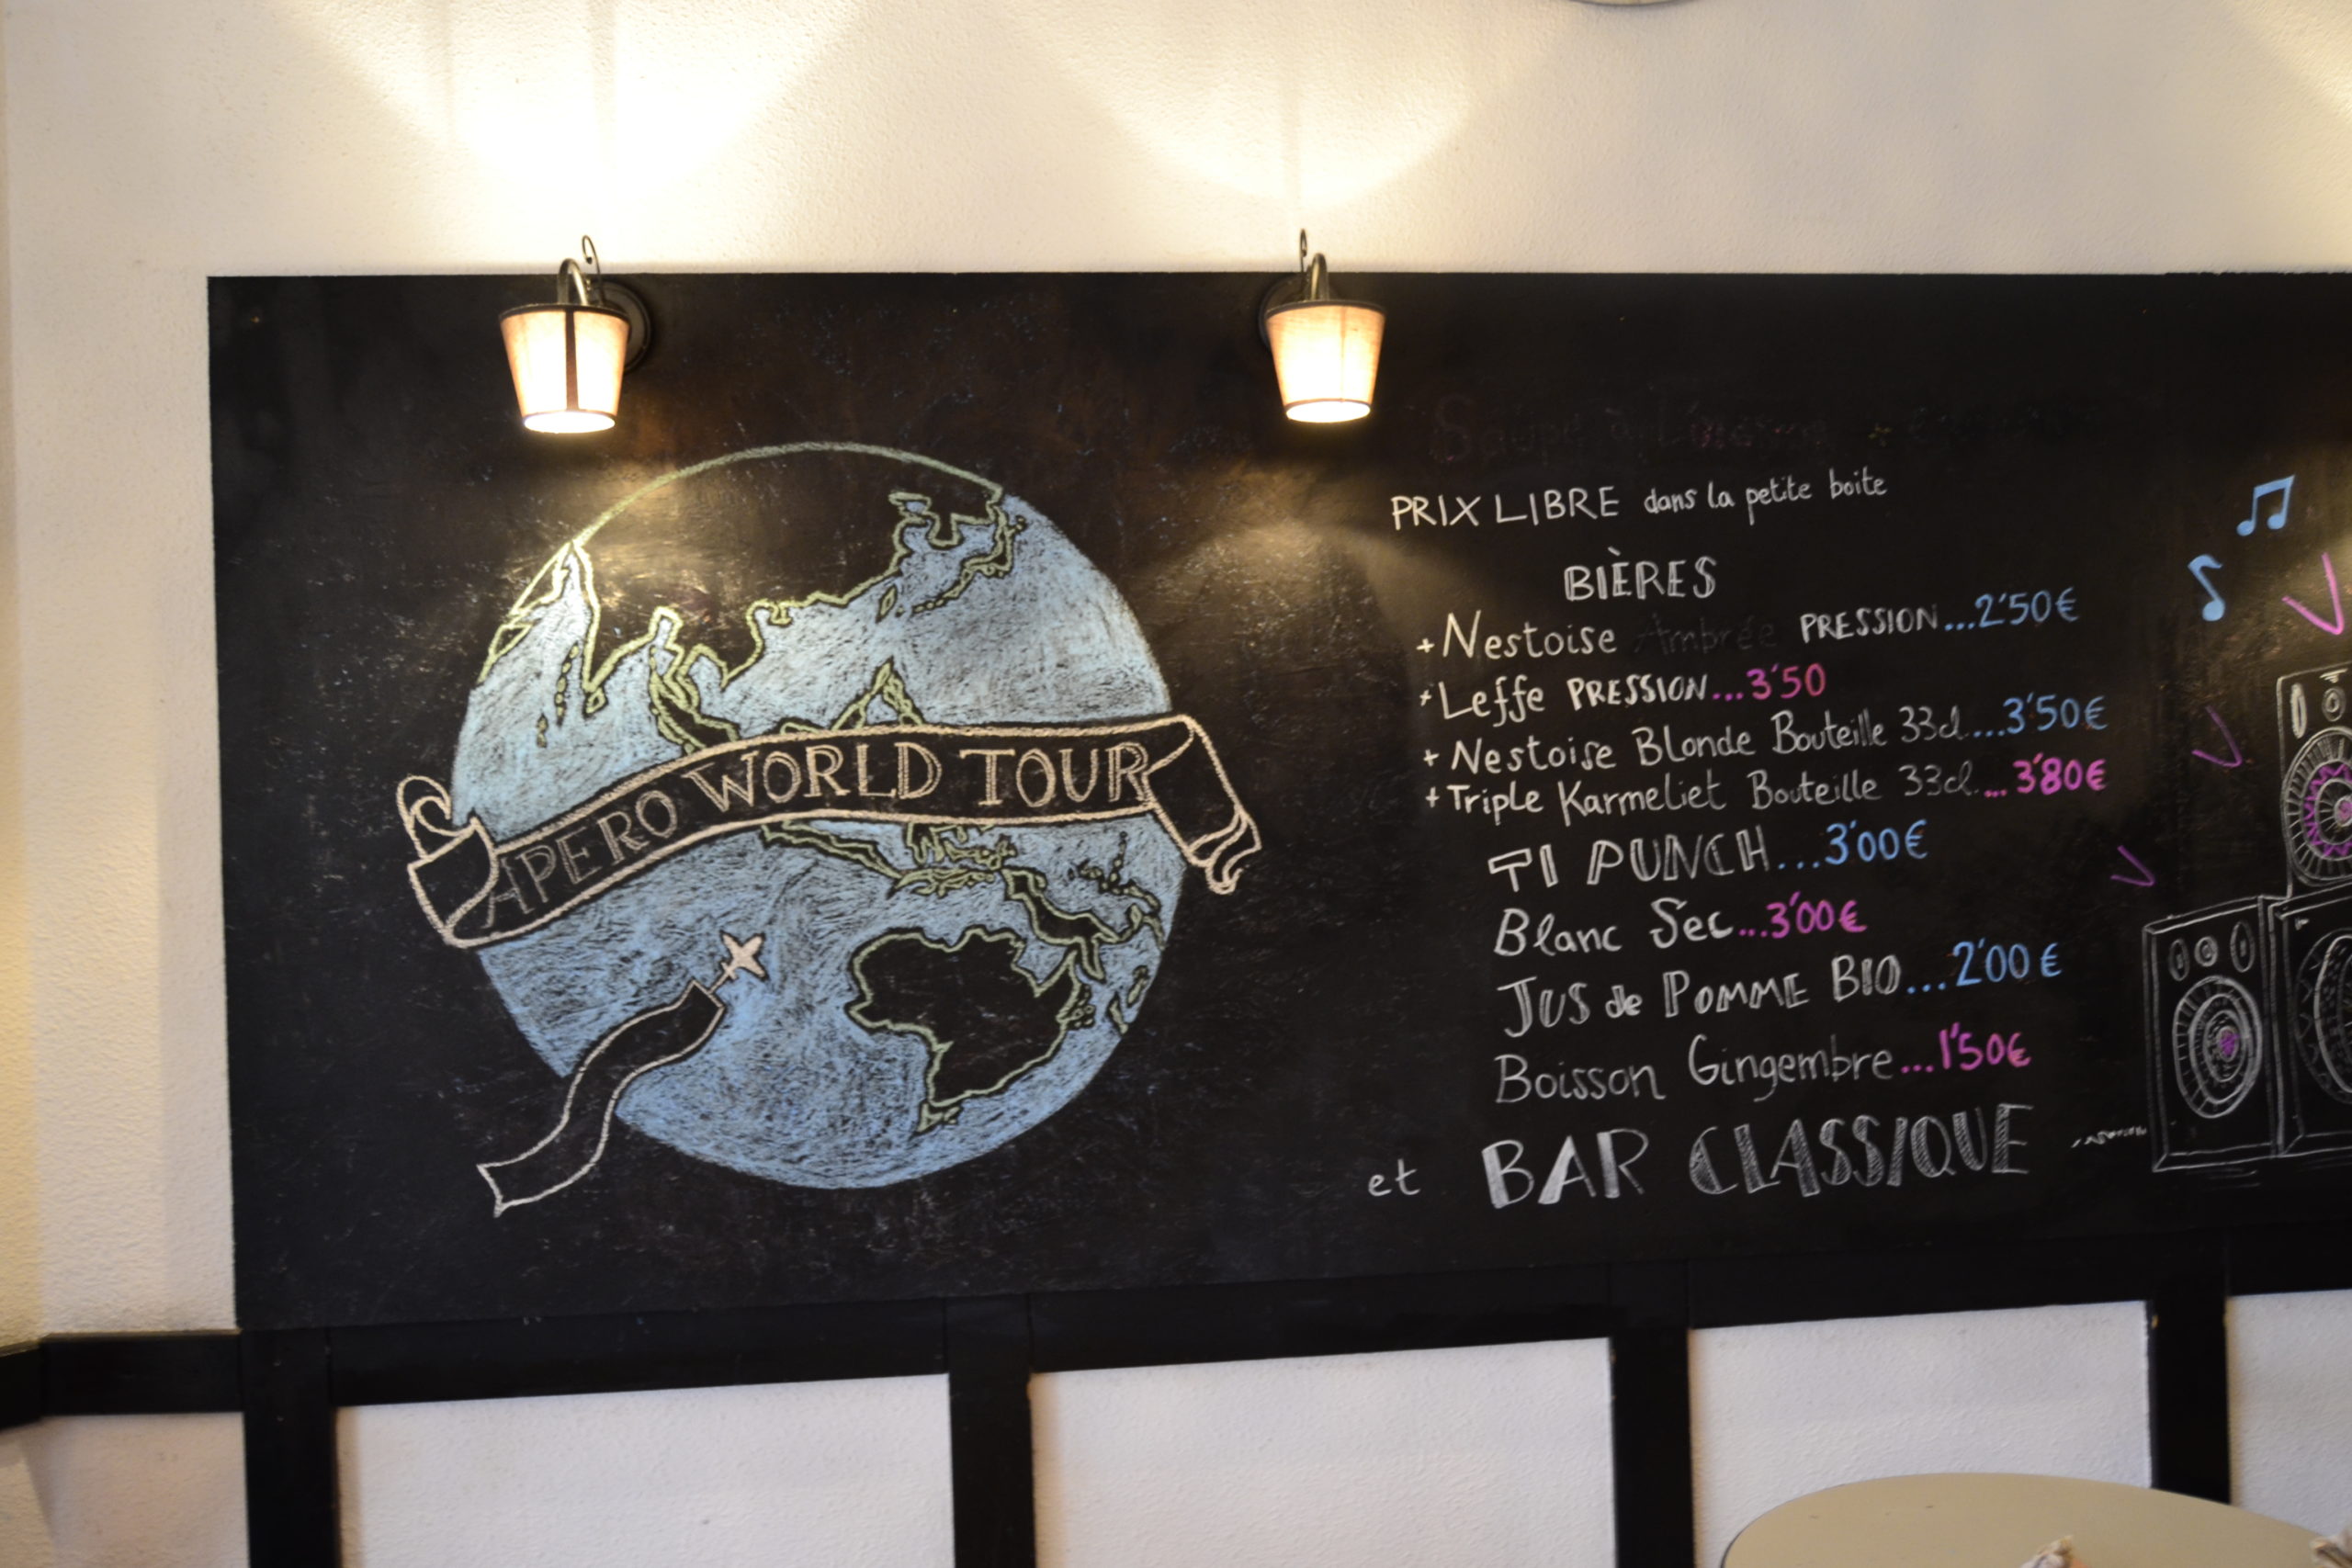 APERO WORLD TOUR
PRIX LIBRE dans la petite boite
BIÈRES
+ Nestoise Ambrée PRESSION...2'50€
+ Leffe PRESSION...3'50
+ Nestoise Blonde Bouteille 33cl....3'50€
+ Triple Karmeliet Bouteille 33cl...3'80€
TI PUNCH...3'00€
Blanc Sec...3'00€
JUS de POMME BIO...2'00€
Boisson Gingembre...1'50€
et BAR CLASSIQUE